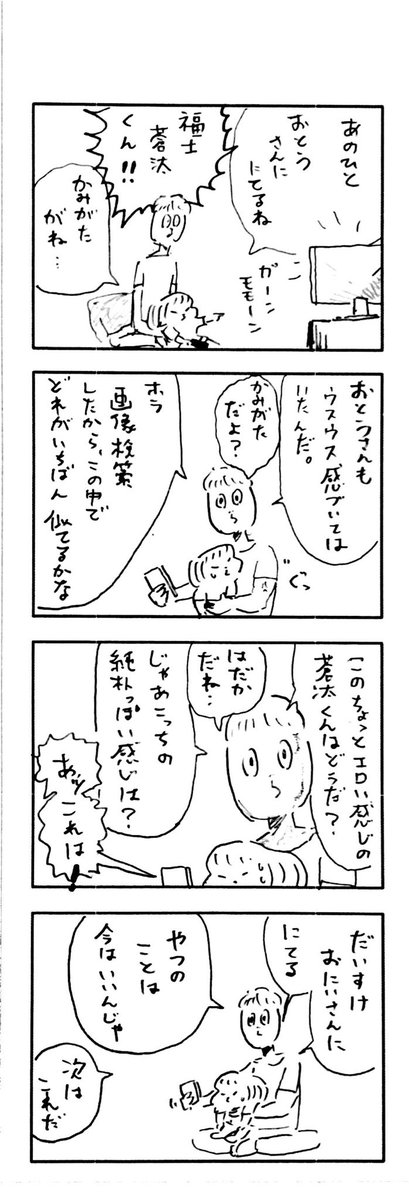 あのひと
おとう
さんに
にてるね
福士
蒼汰
くん!!
かみがた
がね…
ガーン
モモーン
おとうさんも
ウスウス感づいては
いたんだ。
かみがた
だよ?
ホラ
画像検策
したから、この中で
どれがいちばん 似てるかな
ぐっ
このちょっとエロい感じの
蒼汰くんはどうだ?
はだか
だね…
じゃあこっちの
純朴っぽい感じは?
あッ
これは!
だいすけ
おにいさんに
にてる
やつの
ことは
今はいいんじゃ
次は
これだ